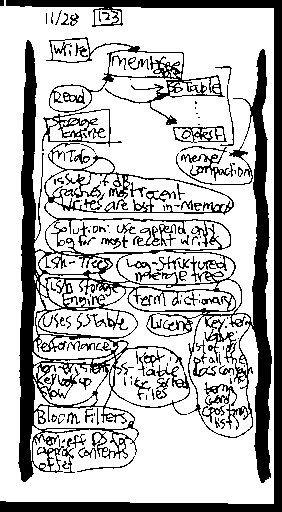 11/28 123
Write
memtree
SSTable
Read
Storage
Engine
oldest
merge/
compaction
Issue: if db
crashes, most recent
writes are lost in-memory
Solution: use append only
log for most recent writes
LSM-Trees
Log-Structured
merge tree
LSM Storage
Engine
Term dictionary
Uses SSTable
Lucene
Key: term
Value
list of ids
of all the
docs contain
term
word
(postings
list)
Performance
non-existent
key lookup
slow
kept in
SS-table
like sorted
files
Bloom Filters
mem-eff DS for
approx contents
of set